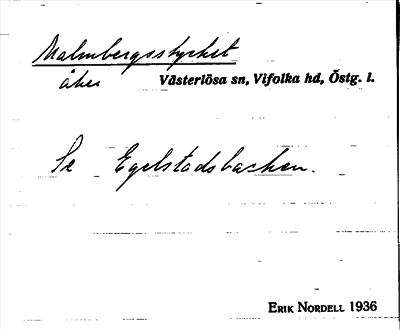 Malmbergsstycket
åker Västerlösa sn, Vifolka hd, Östg. l.
Se Egelstadsbacken.
ERIK NORDELL 1936